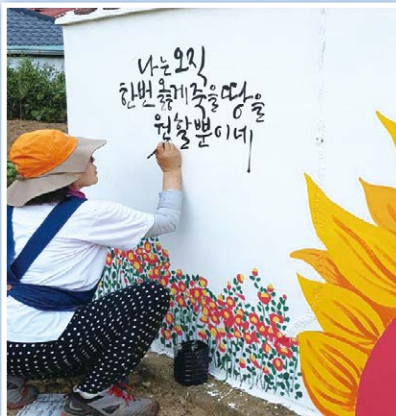 나는 오직
한번 옳게 죽을 땅을
원할 뿐이네